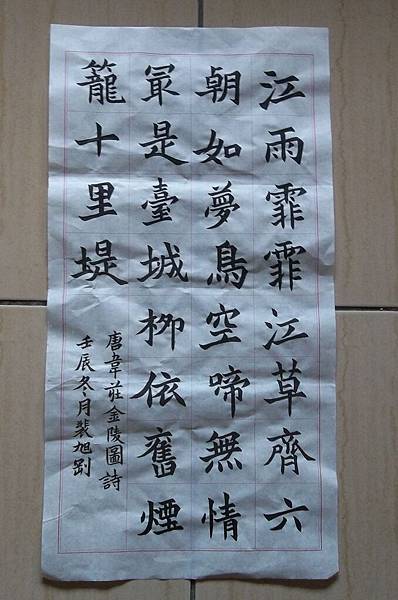 江雨霏霏江草齊六
朝如夢鳥空啼無情
冣是臺城柳依舊煙
籠十里堤
唐韋莊金陵圖詩
壬辰冬月